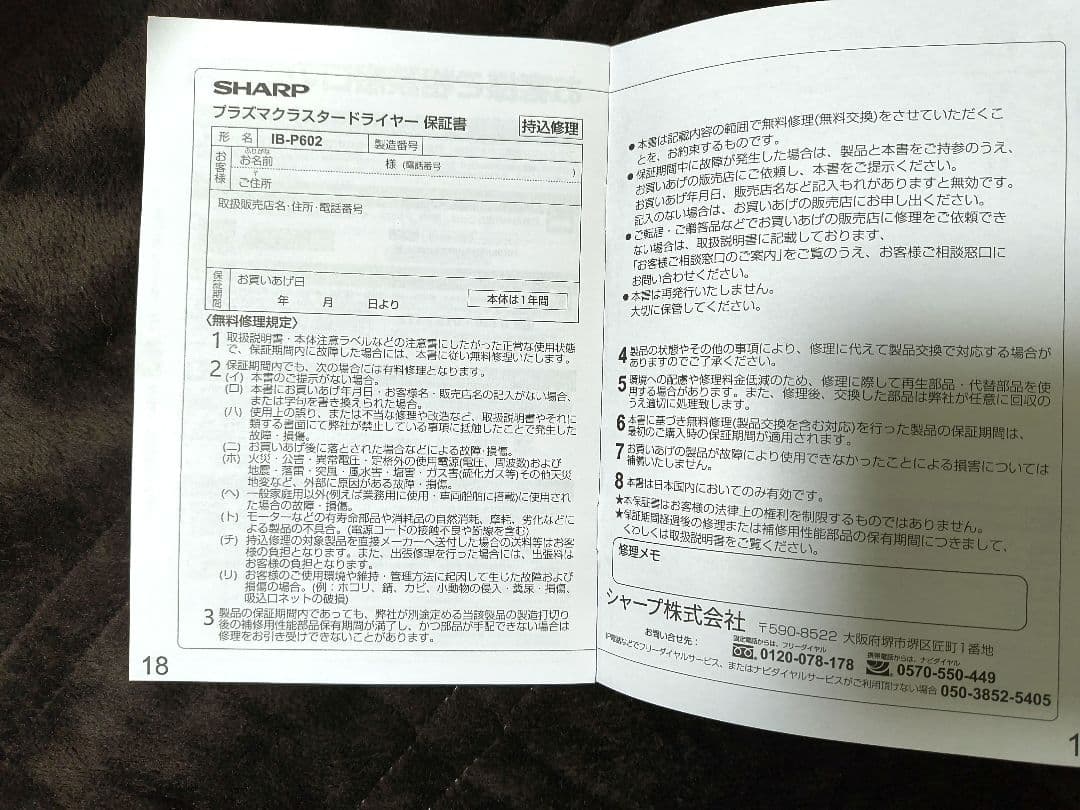 SHARP
プラズマクラスタードライヤー 保証書
持込修理
形 名
IB-P602
製造番号
お客様
ふりがな
お名前
様 (電話番号 )
ご住所
〒
取扱販売店名・住所・電話番号
保証期間
お買いあげ日
年 月 日より
本体は1年間
〈無料修理規定〉
1 取扱説明書・本体注意ラベルなどの注意書にしたがった正常な使用状態
で、保証期間内に故障した場合には、本書に従い無料修理いたします。
2 保証期間内でも、次の場合には有料修理となります。
(イ) 本書のご提示がない場合。
(ロ) 本書にお買いあげ年月日・お客様名・販売店名の記入がない場合、
または字句を書き換えられた場合。
(ハ) 使用上の誤り、または不当な修理や改造など、取扱説明書やそれに
類する書面にて弊社が禁止している事項に抵触したことで発生した
故障・損傷。
(ニ) お買いあげ後に落とされた場合などによる故障・損傷。
(ホ) 火災・公害・異常電圧・定格外の使用電源(電圧、周波数)および
地震・落雷・突風・風水害・塩害・ガス害(硫化ガス等)その他天災
地変など、外部に原因がある故障・損傷。
(ヘ) 一般家庭用以外(例えば業務用に使用・車両船舶に搭載)に使用され
た場合の故障・損傷。
(ト) モーターなどの有寿命部品や消耗品の自然消耗、摩耗、劣化などに
よる製品の不具合。(電源コードの接触不良や断線を含む)
(チ) 持込修理の対象製品を直接メーカーへ送付した場合の送料等はお客
様の負担となります。また、出張修理を行った場合には、出張料は
お客様の負担となります。
(リ) お客様のご使用環境や維持・管理方法に起因して生じた故障および
損傷の場合。(例:ホコリ、錆、カビ、小動物の侵入・糞尿・損傷、
吸込口ネットの破損)
3 製品の保証期間内であっても、弊社が別途定める当該製品の製造打切り
後の補修用性能部品保有期間が満了し、かつ部品が手配できない場合は
修理をお引き受けできないことがあります。
18
●本書は記載内容の範囲で無料修理(無料交換)をさせていただくこ
とを、お約束するものです。
●保証期間中に故障が発生した場合は、製品と本書をご持参のうえ、
お買いあげの販売店にご依頼し、本書をご提示ください。
お買いあげ年月日、販売店名など記入もれがありますと無効です。
記入のない場合は、お買いあげの販売店にお申し出ください。
●ご転居・ご贈答品などでお買いあげの販売店に修理をご依頼でき
ない場合は、取扱説明書に記載しております、
「お客様ご相談窓口のご案内」をご覧のうえ、お客様ご相談窓口に
お問い合わせください。
●本書は再発行いたしません。
大切に保管してください。
4 製品の状態やその他の事項により、修理に代えて製品交換で対応する場合が
ありますのでご了承ください。
5 環境への配慮や修理料金低減のため、修理に際して再生部品・代替部品を使
用する場合があります。また、修理後、交換した部品は弊社が任意に回収の
うえ適切に処理致します。
6 本書に基づき無料修理(製品交換を含む対応)を行った製品の保証期間は、
最初のご購入時の保証期間が適用されます。
7 お買いあげの製品が故障により使用できなかったことによる損害については
補償いたしません。
8 本書は日本国内においてのみ有効です。
★本保証書はお客様の法律上の権利を制限するものではありません。
★保証期間経過後の修理または補修用性能部品の保有期間につきまして、
くわしくは取扱説明書をご覧ください。
修理メモ
シャープ株式会社
〒590-8522 大阪府堺市堺区匠町1番地
お問い合せ先:
固定電話からは、フリーダイヤル
0120-078-178
携帯電話からは、ナビダイヤル
0570-550-449
IP電話などでフリーダイヤルサービス、またはナビダイヤルサービスがご利用頂けない場合 050-3852-5405
1